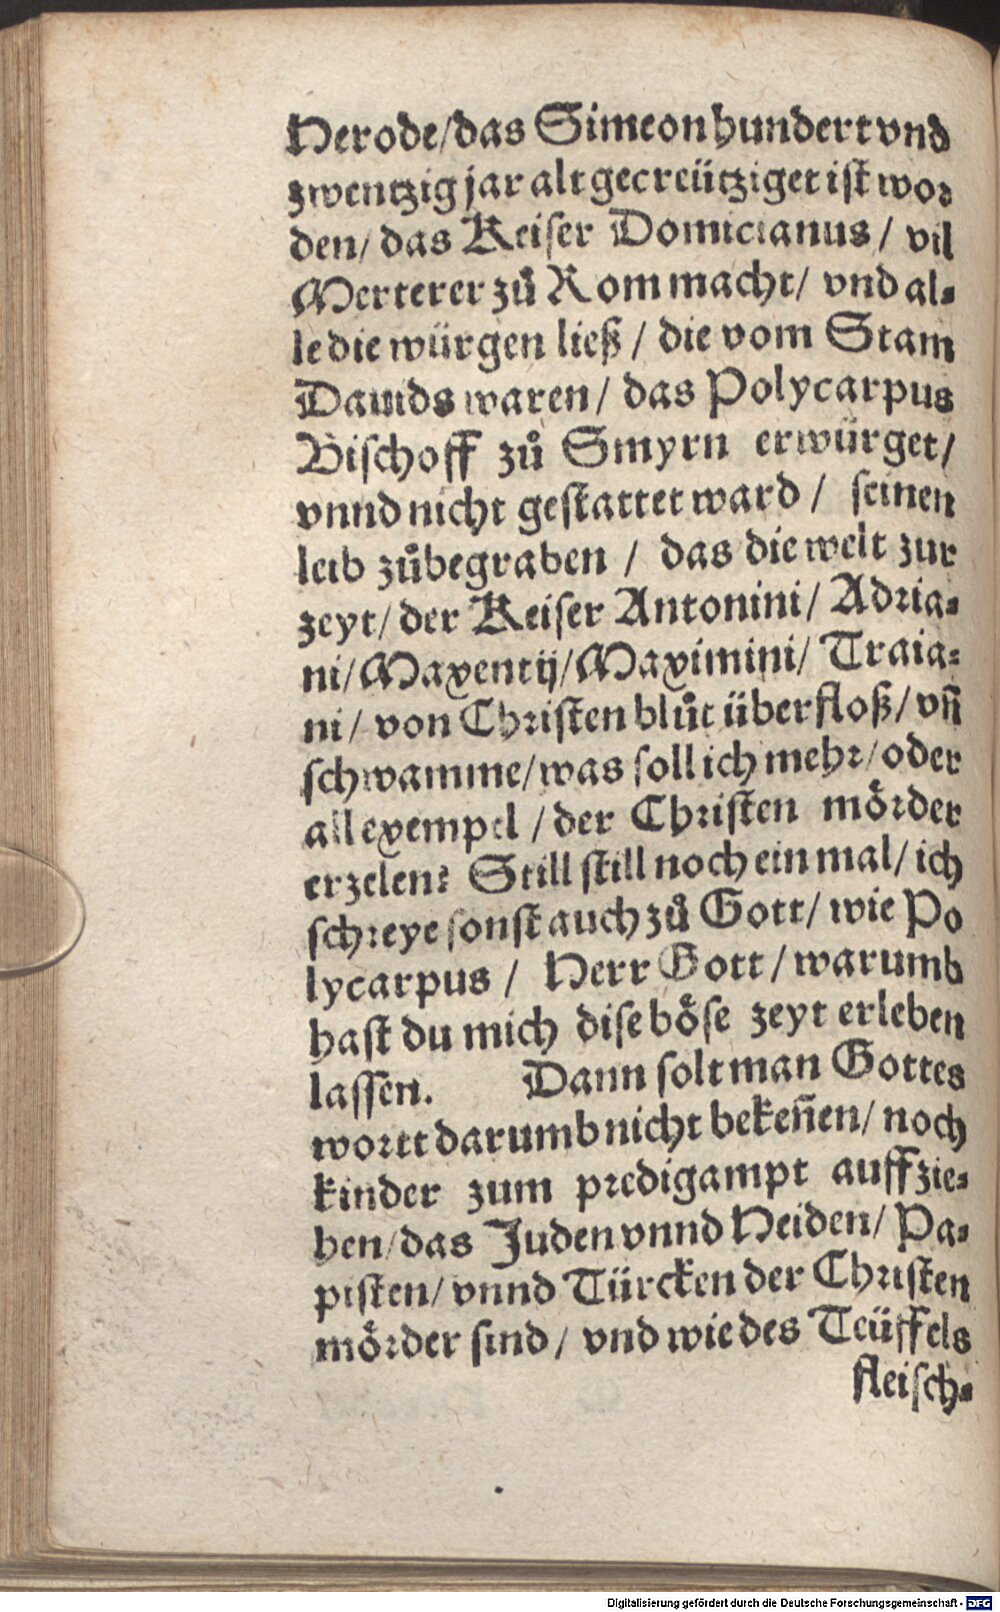 Herode/das Simeon hundert vnd
zwentzig jar alt gecreütziget ist wor
den/ das Keiser Domicianus/ vil
Merterer zů Rom macht/ vnd al⸗
le die würgen ließ / die vom Stam
Dauids waren/ das Polycarpus
Bischoff zů Smyrn erwürget/
vnnd nicht gestattet ward / seinen
leib zůbegraben / das die welt zur
zeyt/ der Keiser Antonini/ Adria⸗
ni/Maxentij/Maximini/ Traia⸗
ni/ von Christen blůt überfloß/ vñ
schwamme/was soll ich mehr/oder
all exempel /der Christen mörder
erzelen? Still still noch ein mal/ ich
schreye sonst auch zů Gott/ wie Po
lycarpus / Herr Gott/warumb
hast du mich dise böse zeyt erleben
lassen. Dann solt man Gottes
wortt darumb nicht bekeñen/ noch
kinder zum predigampt auffzie⸗
hen/das Juden vnnd Heiden/ Pa⸗
pisten/ vnnd Türcken der Christen
mörder sind/ vnd wie des Teüffels
fleisch⸗
Digitalisierung gefördert durch die Deutsche Forschungsgemeinschaft - DFG